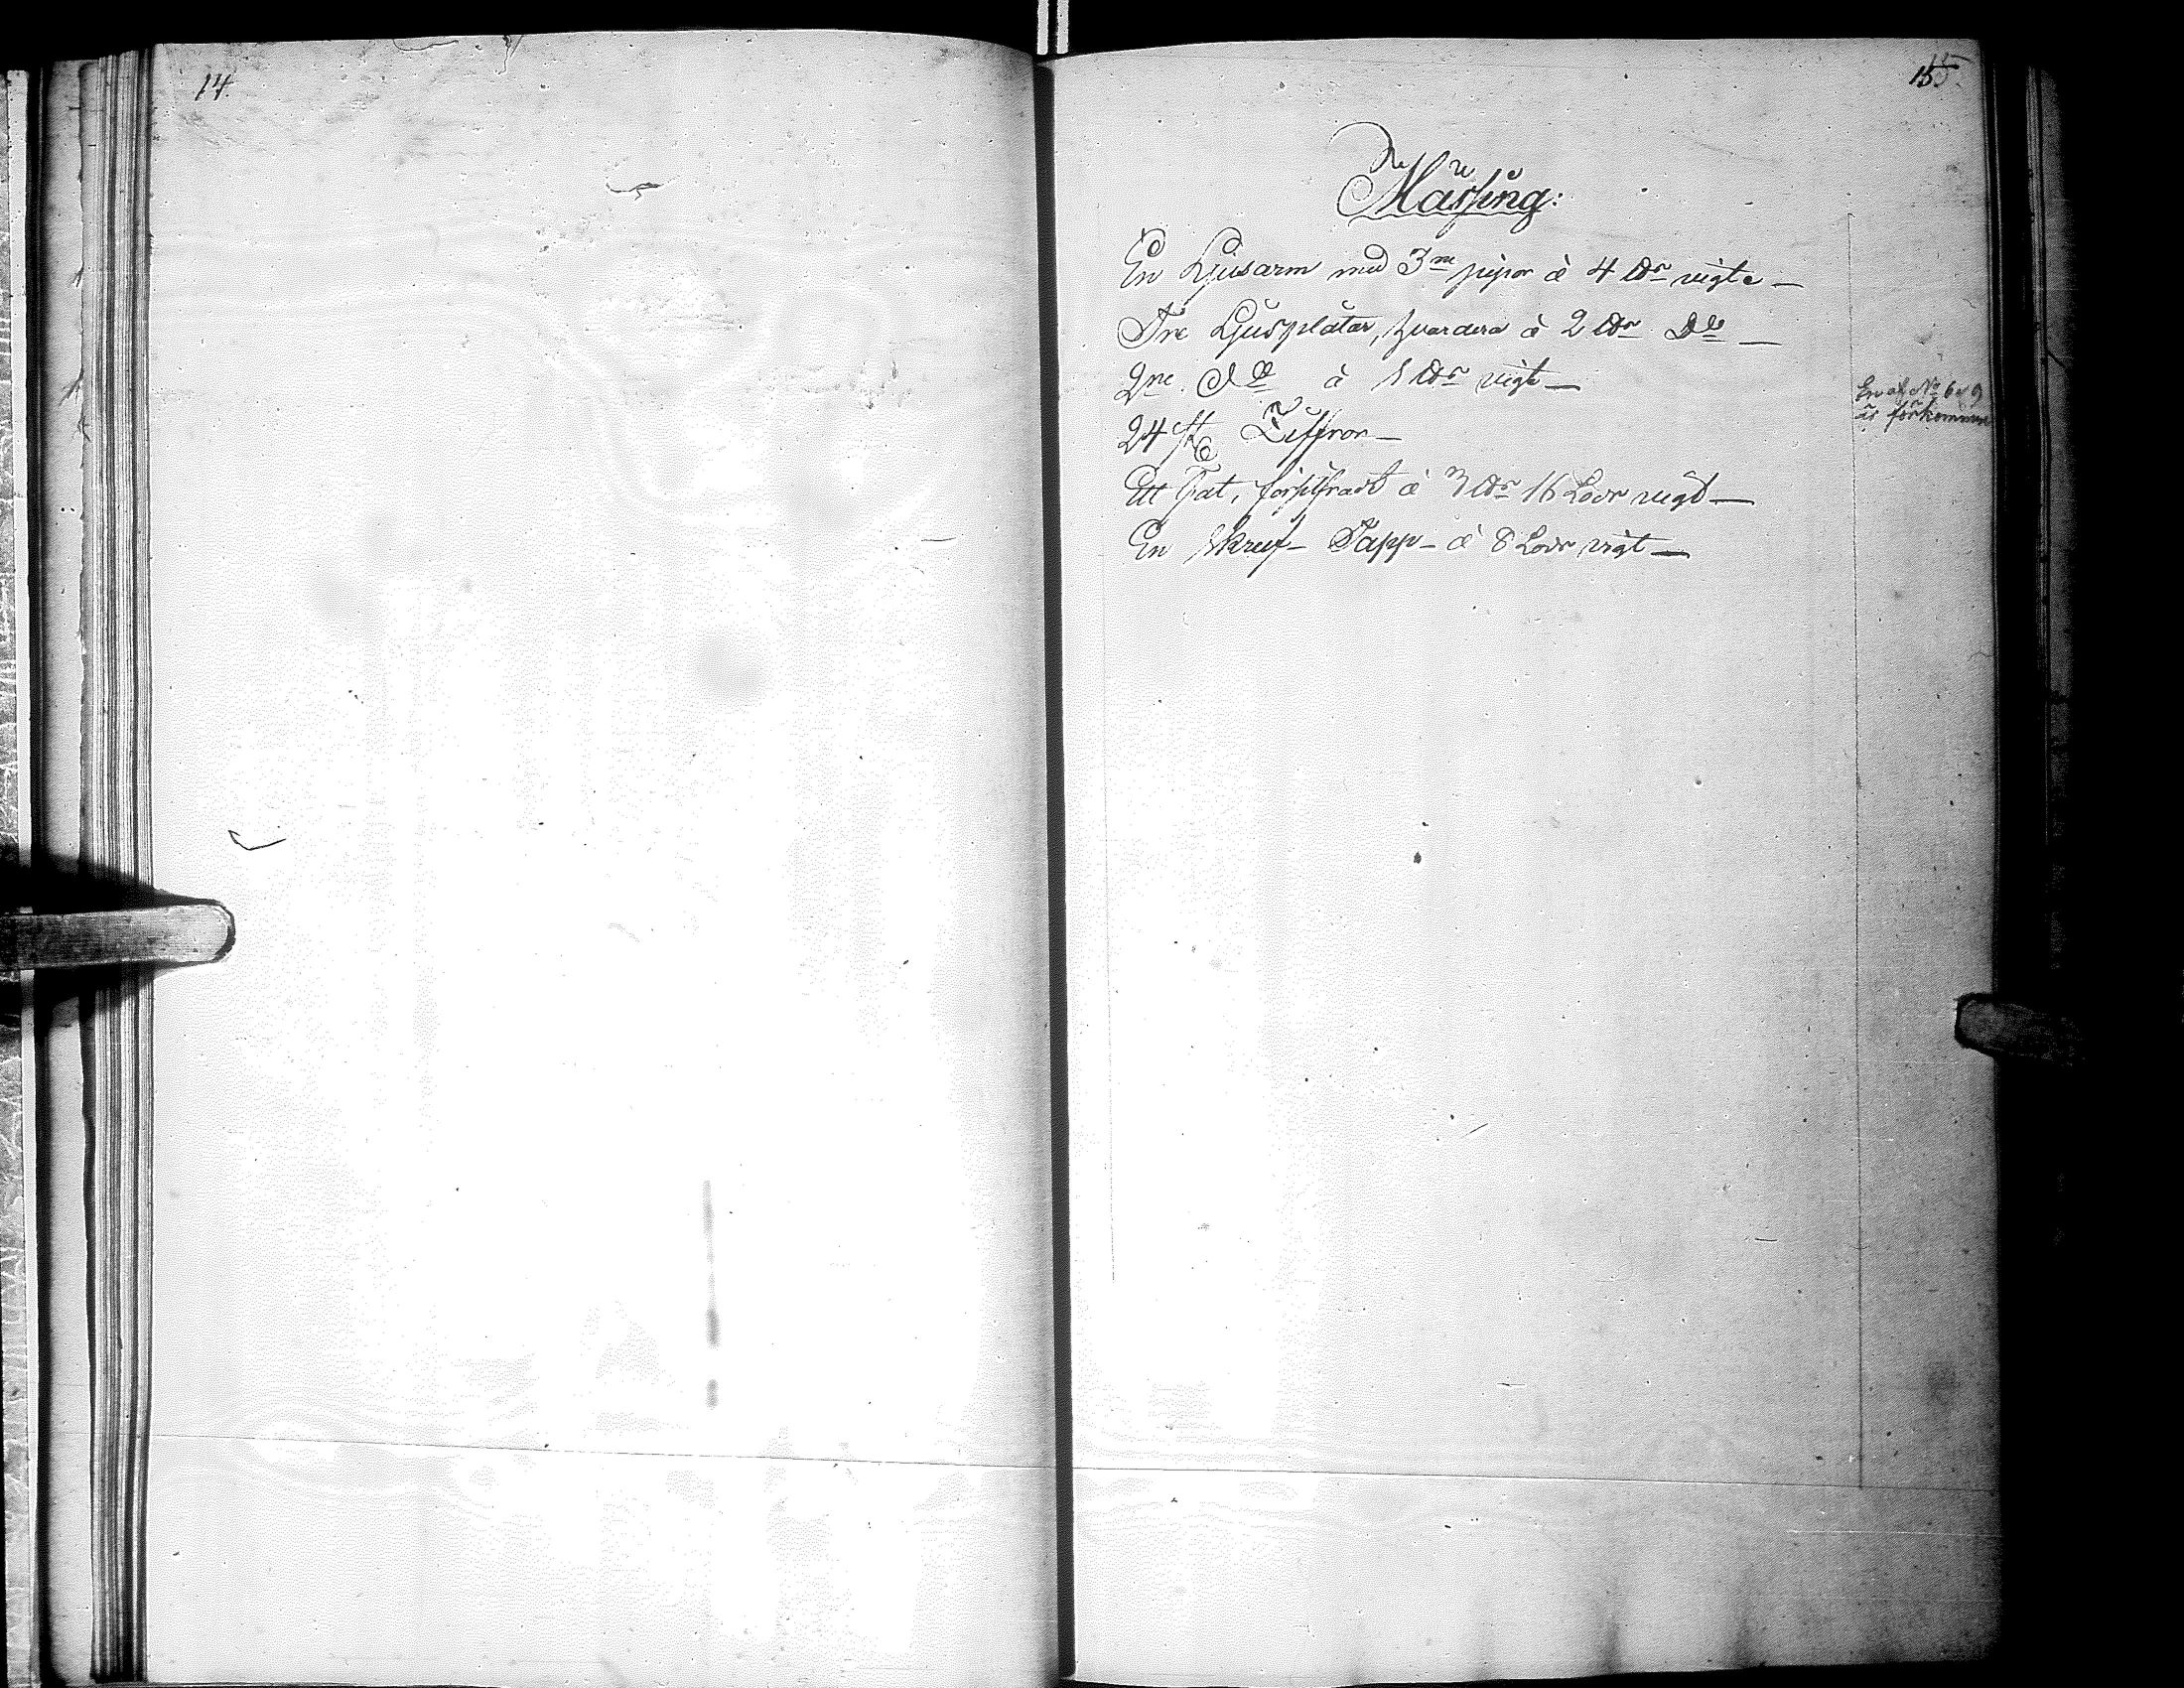 14.
15.
Mässing:
En Ljusarm med 3ne pipor à 4 ℔r vigt e
Tre Ljusplåtar, hvardera à 2 ℔r Do
2ne Do à 1 ℔r vigt
24 st Ziffror
Ett Fat, försilfradt à 3 ℔r 16 Lodr vigt
En Skruf-Tapp à 8 Lodr vigt
En af No 6 o 9
är förkommen